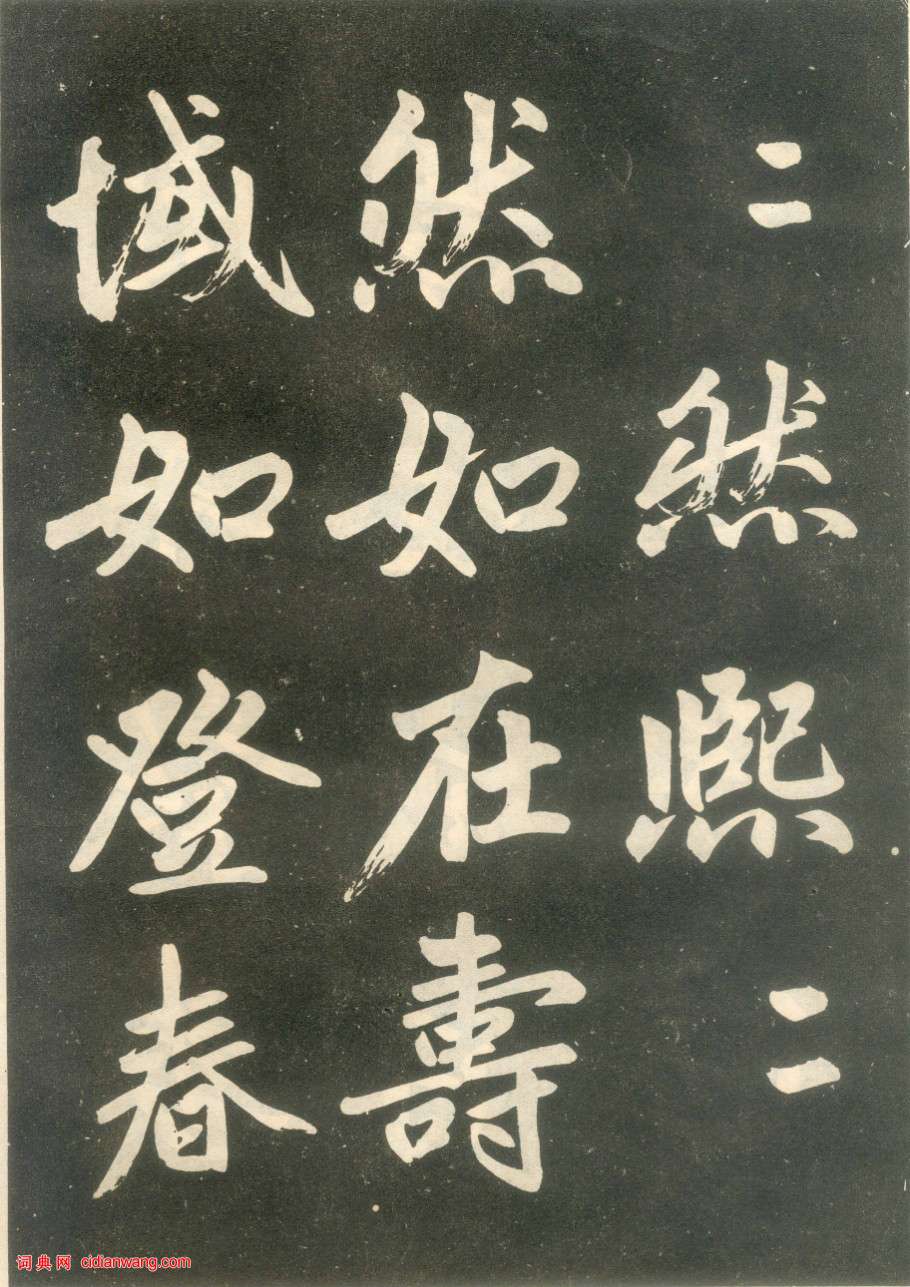 〻然熙〻
然如在壽
域如登春
词典网 cidianwang.com